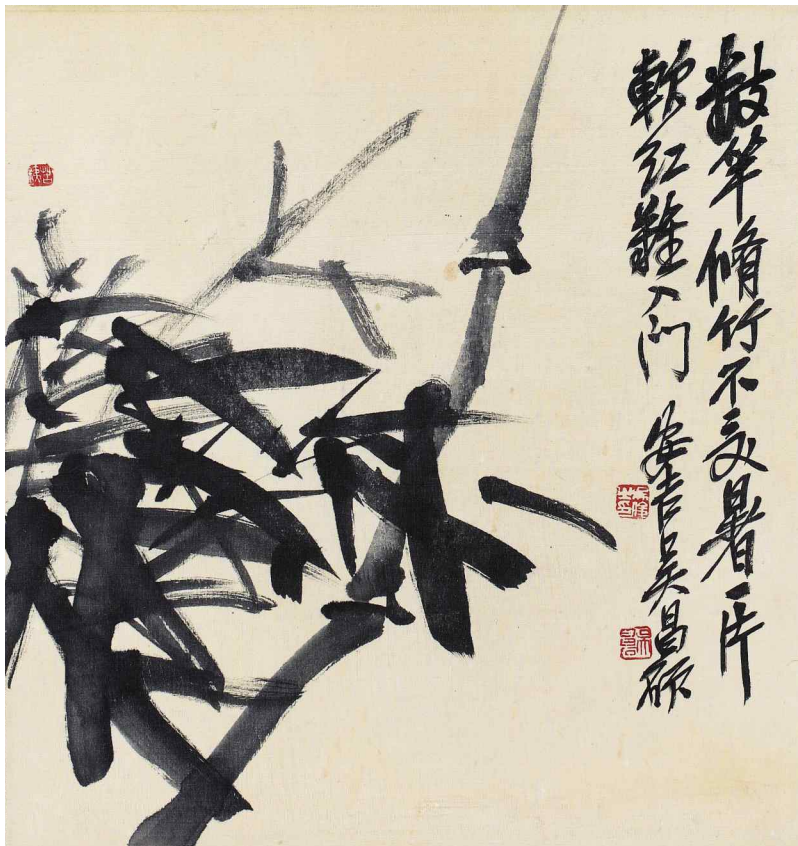 數竿脩竹不受暑一片
軟紅難入門 安吉吳昌碩